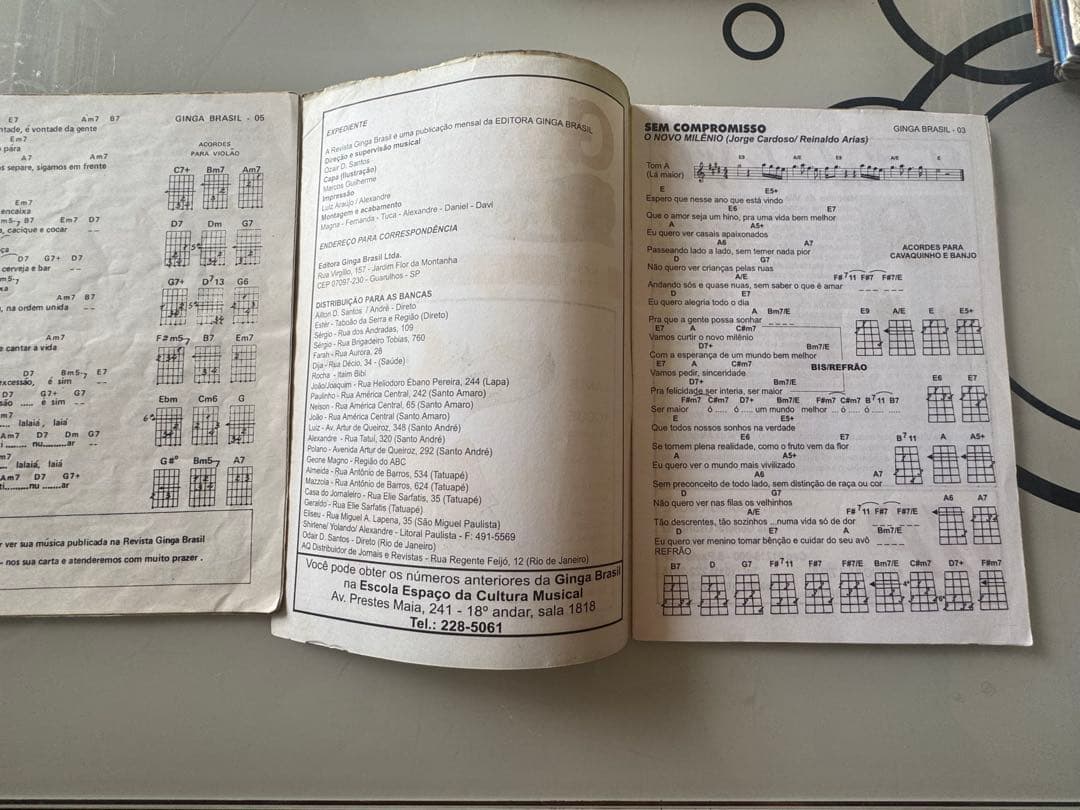 E7 Am7 B7
ntade, é vontade da gente
Em7
o pára
A7 Am7
s separe, sigamos em frente
Em7
encaixa
m5-7 B7 Em7 D7
, cacique e cocar _ _
D7 G7+ D7
cerveja e bar _ _
m5-7
Am7 B7
, na ordem unida _ _
e cantar a vida
D7 Bm5-7 E7
excessão, é sim _ _
D7 G7+ G7
são ..... é sim _ _
m7
lalaiá, laiá
Am7 D7 Dm G7
ti........ nu.........ar
m7
lalaiá, laiá
Am7 D7 G7+
ti..........nu .......ar
GINGA BRASIL - 05
ACORDES
PARA VIOLÃO
C7+ Bm7 Am7
D7 Dm G7
G7+ D7 13 G6
F#m5-7 B7 Em7
Ebm Cm6 G
G#° Bm5-7 A7
r ver sua música publicada na Revista Ginga Brasil
- nos sua carta e atenderemos com muito prazer .
EXPEDIENTE
A Revista Ginga Brasil é uma publicação mensal da EDITORA GINGA BRASIL
Direção e supervisão musical
Ozair D. Santos
Capa (Ilustração)
Marcos Guilherme
Impressão
Luiz Araujo / Alexandre
Montagem e acabamento
Magna - Fernanda - Tuca - Alexandre - Daniel - Davi
ENDEREÇO PARA CORRESPONDÊNCIA
Editora Ginga Brasil Ltda.
Rua Virgílio, 157 - Jardim Flor da Montanha
CEP 07097-230 - Guarulhos - SP
DISTRIBUIÇÃO PARA AS BANCAS
Ailton D. Santos / André - Direto
Estér - Taboão da Serra e Região (Direto)
Sérgio - Rua dos Andradas, 109
Sérgio - Rua Brigadeiro Tobias, 760
Farah - Rua Aurora, 28
Dija - Rua Décio, 34 - (Saúde)
Rocha - Itaim Bibi
João/Joaquim - Rua Heliodoro Ébano Pereira, 244 (Lapa)
Paulinho - Rua América Central, 242 (Santo Amaro)
Nelson - Rua América Central, 65 (Santo Amaro)
João - Rua América Central (Santo Amaro)
Luiz - Av. Artur de Queiroz, 348 (Santo André)
Alexandre - Rua Tatuí, 320 (Santo André)
Polano - Avenida Artur de Queiroz, 292 (Santo André)
Geone Magno - Região do ABC
Almeida - Rua Antônio de Barros, 534 (Tatuapé)
Mazzola - Rua Antônio de Barros, 624 (Tatuapé)
Casa do Jornaleiro - Rua Elie Sarfatis, 35 (Tatuapé)
Geraldo - Rua Elie Sarfatis (Tatuapé)
Eliseu - Rua Miguel A. Lapena, 35 (São Miguel Paulista)
Shirlene/ Yolando/ Alexandre - Litoral Paulista - F: 491-5569
Odair D. Santos - Direto (Rio de Janeiro)
AQ Distribuidor de Jornais e Revistas - Rua Regente Feijó, 12 (Rio de Janeiro)
Você pode obter os números anteriores da Ginga Brasil
na Escola Espaço da Cultura Musical
Av. Prestes Maia, 241 - 18º andar, sala 1818
Tel.: 228-5061
SEM COMPROMISSO
GINGA BRASIL - 03
O NOVO MILÊNIO (Jorge Cardoso/ Reinaldo Arias)
E9 A/E E9 A/E E
Tom A
(Lá maior)
E E5+
Espero que nesse ano que está vindo
E6 E7
Que o amor seja um hino, pra uma vida bem melhor
A A5+
Eu quero ver casais apaixonados
A6 A7
Passeando lado a lado, sem temer nada pior
D G7
Não quero ver crianças pelas ruas
A/E F#7 11 F#7 F#7/E
Andando sós e quase nuas, sem saber o que é amar _ _ _ _
D E7
Eu quero alegria todo o dia
A Bm7/E
Pra que a gente possa sonhar _ _ _ _
E7 A C#m7
Vamos curtir o novo milênio
D7+ Bm7/E
Com a esperança de um mundo bem melhor
E7 A C#m7
Vamos pedir, sinceridade
D7+ Bm7/E
Pra felicidade ser inteira, ser maior
F#m7 C#m7 D7+ Bm7/E F#m7 C#m7 B7 11 B7
Ser maior ó ..... ó ..... um mundo melhor ... ó ..... ó .....
E E5+
Que todos nossos sonhos na verdade
E6 E7
Se tornem plena realidade, como o fruto vem da flor
A A5+
Eu quero ver o mundo mais vivilizado
A6 A7
Sem preconceito de todo lado, sem distinção de raça ou cor
D G7
Não quero ver nas filas os velhinhos
A/E F#7 11 F#7 F#7/E
Tão descrentes, tão sozinhos ...numa vida só de dor _ _ _ _
D E7 A Bm7/E
Eu quero ver menino tomar bênção e cuidar do seu avô _ _ _
REFRÃO
BIS/REFRÃO
ACORDES PARA
CAVAQUINHO E BANJO
E9 A/E E E5+
E6 E7
B7 11 A A5+
A6 A7
B7 D G7 F#7 11 F#7 F#7/E Bm7/E C#m7 D7+ F#m7